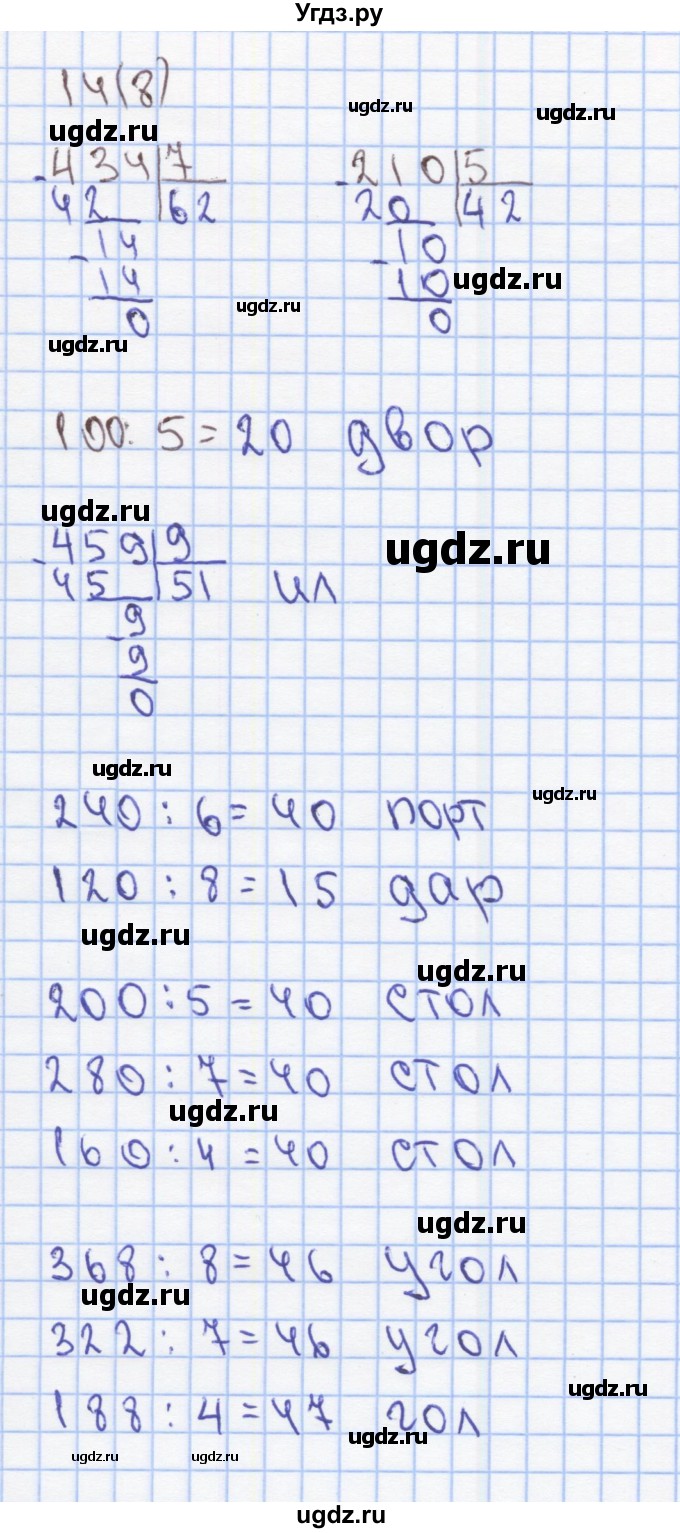 Угдз.ру
14(8)
ugdz.ru
ugdz.ru
ugdz.ru
- 434 7
42 62
- 14
14
0
- 210 5
20 42
- 10
10
0
ugdz.ru
ugdz.ru
ugdz.ru
100 : 5 = 20 двор
ugdz.ru
ugdz.ru
- 459 9
45 51 ил
- 9
9
0
ugdz.ru
ugdz.ru
240 : 6 = 40 порт
120 : 8 = 15 дар
ugdz.ru
ugdz.ru
200 : 5 = 40 стол
280 : 7 = 40 стол
ugdz.ru
160 : 4 = 40 стол
ugdz.ru
368 : 8 = 46 угол
ugdz.ru
322 : 7 = 46 угол
ugdz.ru
188 : 4 = 47 гол
ugdz.ru
ugdz.ru
ugdz.ru
ugdz.ru